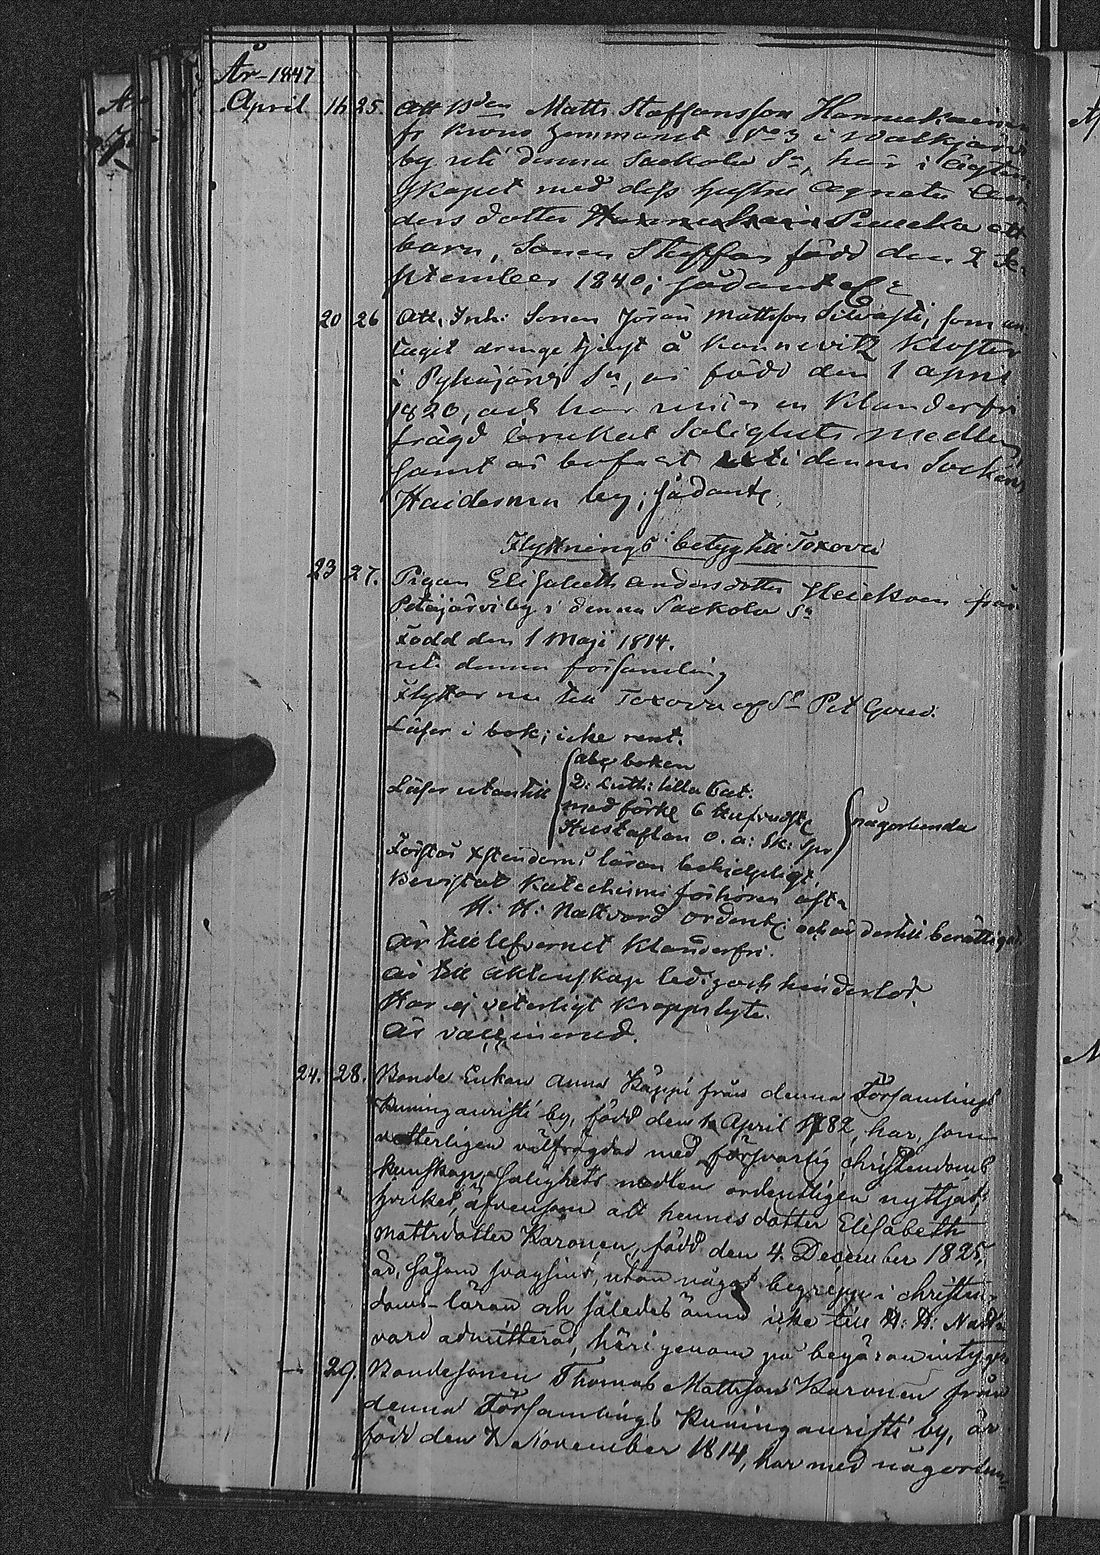 År 1847
April 16 25. Att Bden Matts Staffansson Hannukainen
fr Krono hemmanet No 3 i Walkjärvi
by uti denna Sackola Sn, har i Ägten-
skapet med dess hustru Agneta An-
ders dotter Peucko ett
barn, Sonen Staffan född den 2 Se-
ptember 1840; sådant &c
20 26 Att, Inh: Sonen Jöran Mattsson Silvasti, som an-
tagit drengetjenst å Konnevitz Kloster
i Pyhäjärvi Sn, är född den 1 April
1820, och har under en klanderfri
frägd brukat Salighets medlen
samt är bofast uti denna Sockens
Haiderma by; sådant
Flyttnings betyg till Toxova
23 27. Pigan Elisabeth Andersdotter Heickoen från
Petäjärvi by i denna Sackola Sn
Född den 1 Maji 1814.
uti denna församling
Flyttar nu till Toxova af St Pet Gouv.
Läser i bok; icke rent.
Läser utantill abc boken
D: Luth: lilla Cat:
med förkl 6 hufvudst
Hustaflan o. a: Sk: Spr någorlunda
Förstår Xstendoms läran behjelpligt
Bevistat Katechismi förhören ofta
H: H: Nattvard ordentl och är dertill berättigad
Är till lefvernet klanderfri.
Är till äktenskap ledig och hinderlös.
Har ej veterligt kroppslyte.
Är vaccinerad.
24. 28. Bonde Enkan Anna Käppi från denna Församlings
Kuninganristi by, född den April 1782, har, som
vetterligen välfrägdad med försvarlig christendoms
kunskap, salighets medlen ordentligen nyttjat;
hvilket, äfvensom att hennes dotter Elisabeth
Mattsdotter Karonen, född den 4 December 1825,
är, såsom svagsint, utan något begrepp i christen-
doms-läran och således ännu icke till H: H: Natt-
vard admitterad, härigenom på begäran intygas
— 29. Bondesonen Thomas Mattsson Karonen från
denna Församlings Kuninganristi by, är
född den 7 November 1814, har med någorlun-